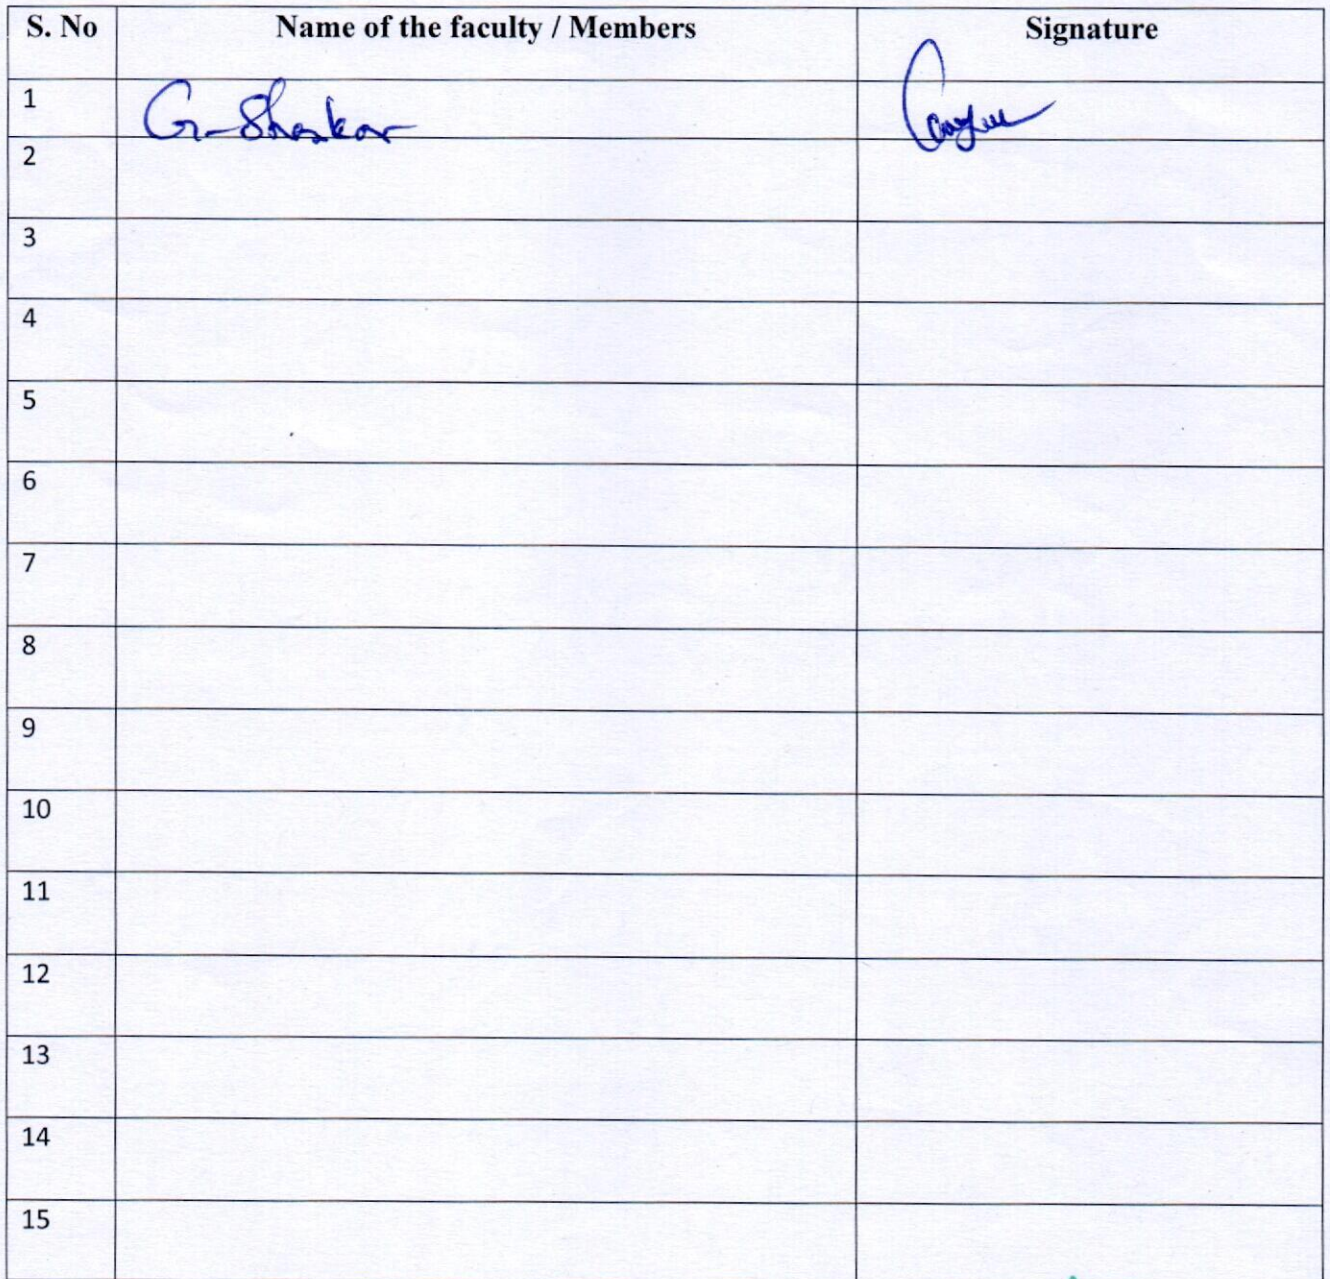 S. No Name of the faculty / Members Signature
1 G. Shankar
2
3
4
5
6
7
8
9
10
11
12
13
14
15